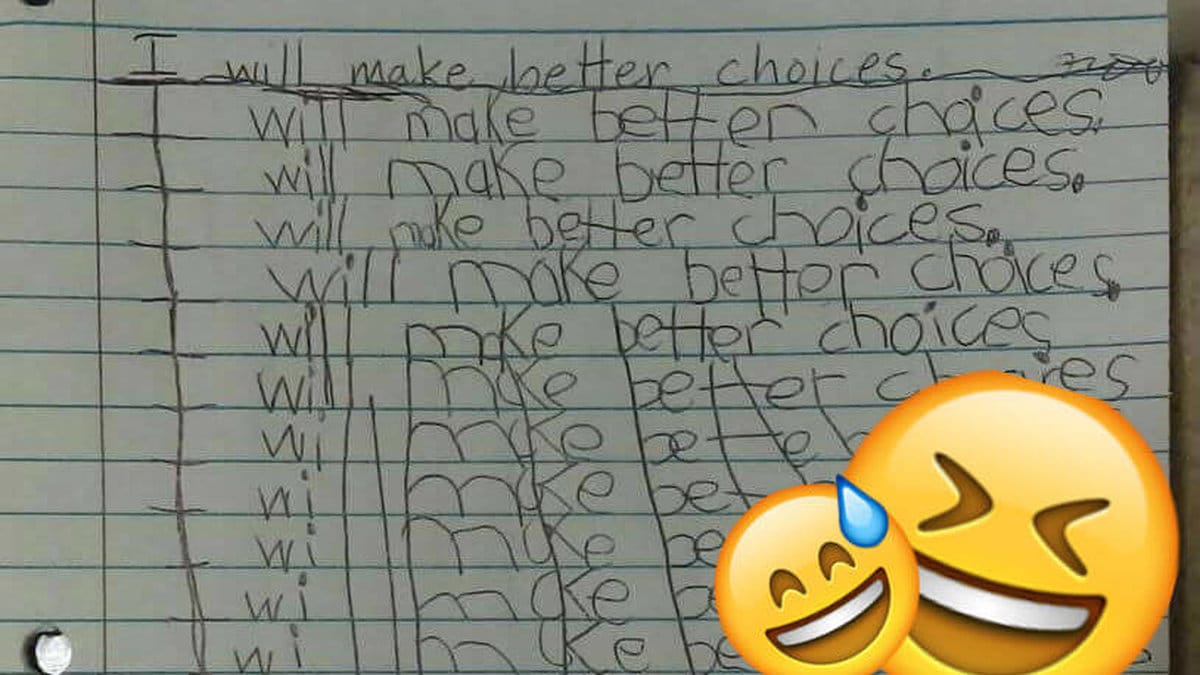 I will make better choices.
I will make better choices.
I will make better choices.
I will make better choices.
I will make better choices.
I will make better choices
I will make better
I will make better
I will make
I will make
I will make
I will make